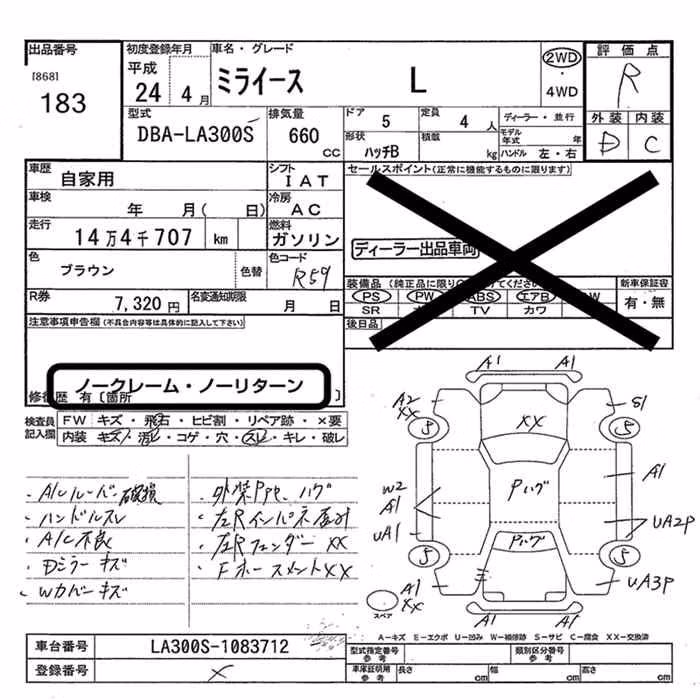 出品番号
[868]
183
初度登録年月
平成
24 4月
車名・グレード
ミライース L
2WD
・
4WD
評価点
R
型式
DBA-LA300S
排気量
660
CC
ドア
5
定員
4 人
ディーラー・並行
モデル年式 年
形状
ハッチB
積載
kg
ハンドル 左・右
外装 内装
D C
車歴
自家用
シフト
IAT
車検
年 月( 日)
冷房
AC
走行
14万4千707 km
燃料
ガソリン
色
ブラウン
色替
色コード
R59
R券
7,320円
名変通知期限
月 日
セールスポイント(正常に機能するものに限ります)
ディーラー出品車両
装備品
新車保証書
PS PW ABS エアB W
有・無
SR TV カワ
後日品
注意事項申告欄(不具合内容等は具体的に記入して下さい)
ノークレーム・ノーリターン
修復歴 有〔箇所 〕
検査員記入欄
FW キズ・飛石・ヒビ割・リペア跡・×要
内装 キズ・汚レ・コゲ・穴・スレ・キレ・破レ
・A/Cルーバー破損
・ハンドルスレ
・A/C不良
・Dミラーキズ
・Wカバーキズ
・左Rインパネ歪み
・左Rフェンダー XX
・FホースメントXX
A1 A1
A2
XX
S1
XX
5 5
W2
A1
UA1
Pハゲ
A1
UA2P
Pハゲ
5 5
A1
XX
スペア
UA3P
A1 A1
A-キズ E-エクボ U-凹み W-補修跡 S-サビ C-腐食 XX-交換済
車台番号
LA300S-1083712
登録番号
×
型式指定番号
参考
類別区分番号
参考
車庫証明用
参考
長さ cm 幅 cm 高さ cm